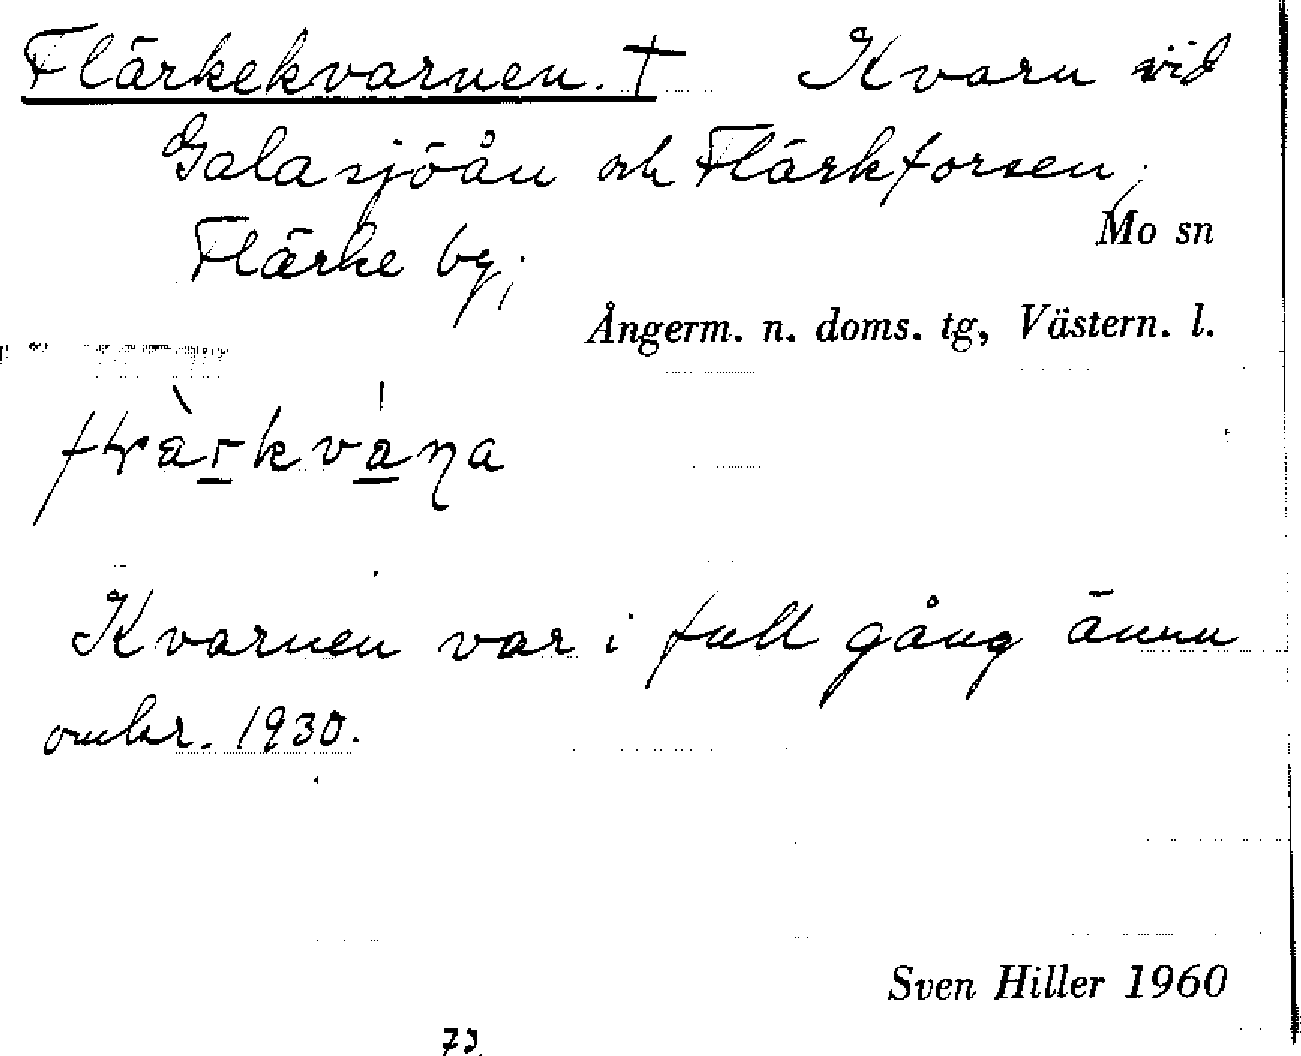 Flärkekvarnen. † Kvarn vid
Galasjöån och Flärkforsen,
Flärke by;
Mo sn
Ångerm. n. doms. tg, Västern. l.
Kvarnen var i full gång ännu
omkr. 1930.
Sven Hiller 1960